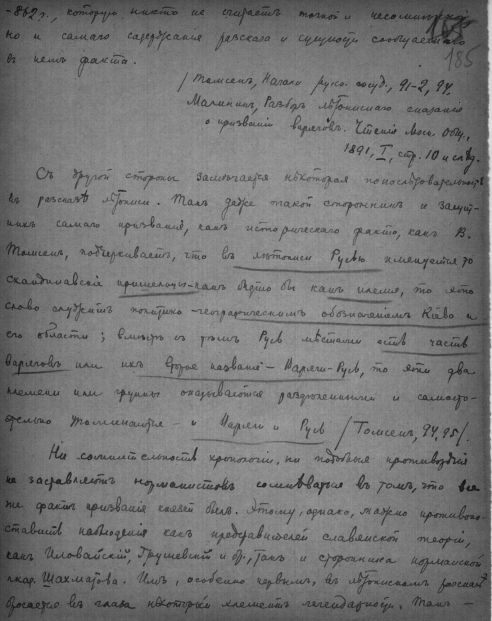 -862 г., которую никто не считает точной и несомненной,
но и самаго содержания разсказа и сущности сообщаемаго
в нем факта.
185
/ Томсен, Начало русс. госуд., 91-2, 94.
Малинин, Разбор лѣтописнаго сказания
о призвании варягов. Чтения Моск. Общ.,
1891, I, стр. 10 и слѣд.
Съ другой стороны замѣчается нѣкоторая непослѣдовательность
въ разсказѣ лѣтописи. Такъ даже такой сторонникъ и защит-
никъ самаго призвания, какъ историческаго факта, какъ В.
Томсенъ, подчеркиваетъ, что въ лѣтописи Русью именуется то
скандинавские пришельцы какъ бы какъ племя, то это
слово служитъ политико-географическимъ обозначениемъ Киева и
его области; вмѣстѣ съ тѣмъ Русь мѣстами есть часть
Варяговъ или ихъ второе название - Варяги-Русь, то эти два
племени или группы оказываются раздѣленными и самосто-
ятельно - и Варяги и Русь / Томсенъ, 94, 95/.
Ни сомнительность хронологии, ни подобныя противорѣчия
не заставляютъ норманистовъ сомнѣваться въ томъ, что все
же фактъ призвания князей былъ. Этому, однако, можно противопо-
ставить наблюдения какъ представителей славянской теории,
какъ Иловайский, Грушевский и др., такъ и сторонника норманской
акад. Шахматова. Имъ, особенно первымъ, въ лѣтописномъ разсказѣ
бросается въ глаза нѣкоторый элементъ легендарности. Такъ -